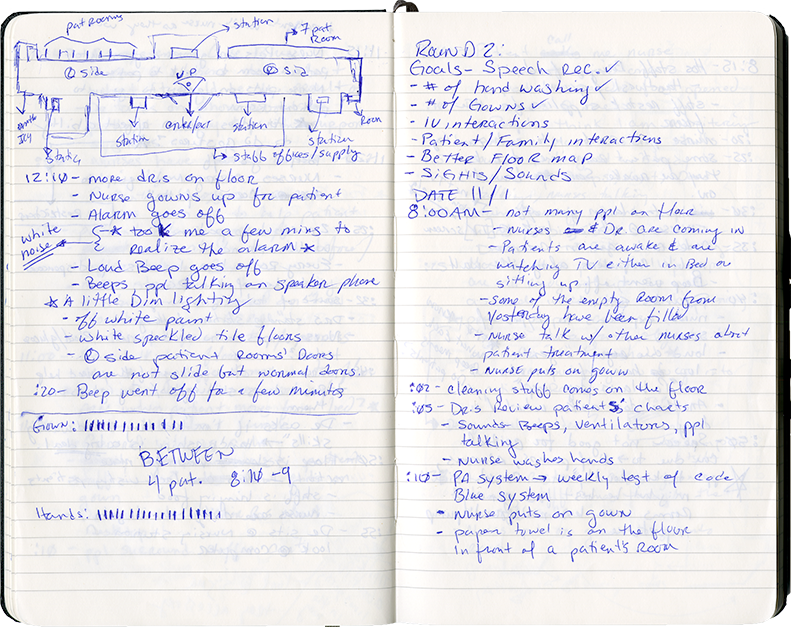 pat rooms
station
7 pat Room
L side
R sid
UP
station
station
station
Room
station
staff offices/supply
12:10 - more dr.s on floor
- Nurse gowns up for patient
- Alarm goes off
white noise
* took me a few mins to
realize the alarm *
- Loud Beep goes off
- Beeps, ppl talking on speaker phone
* A little Dim lighting
- off white paint
- white speckled tile floors
- L side patient Rooms' Doors
are not slide but normal doors.
:20 - Beep went off for a few minutes
Gown:
BETWEEN
4 pat. 8:10 - 9
Hands:
Round 2:
Goals - Speech Rec. ✓
- # of hand washing ✓
- # of Gowns ✓
- IV interactions
- Patient/Family interactions
- Better Floor map
- Sights/Sounds
DATE 11/1
8:00AM - not many ppl on floor
- Nurses & Dr. are coming in
- Patients are awake & are
watching TV either in Bed or
sitting up
- Some of the empty Room from
Yesterday have been filled
- Nurse talk w/ other nurses about
patient treatment
- Nurse puts on gown
:02 - cleaning stuff comes on the floor
:05 - Dr.s Review patients' charts
- Sounds - Beeps, ventilatures, ppl
talking
- Nurse washes hands
:10 - PA System → weekly test of code
Blue System
• Nurse puts on gown
• paper towel is on the floor
in front of a patient's Room